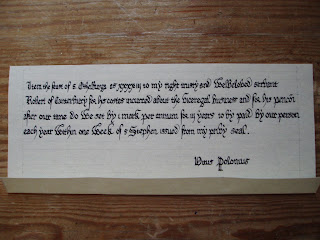 from the feast of S Ethelburga as xxxxiii to my right trusty and Welbeloved servant
Robert of Canterbury for his costes incurred about the Viceregal business and for his pencon
after our time do We set by i mark per annum for iii years to by paid by our person
each year Within one Week of S Stephen issued from my privy seal.
Vitus Polonius